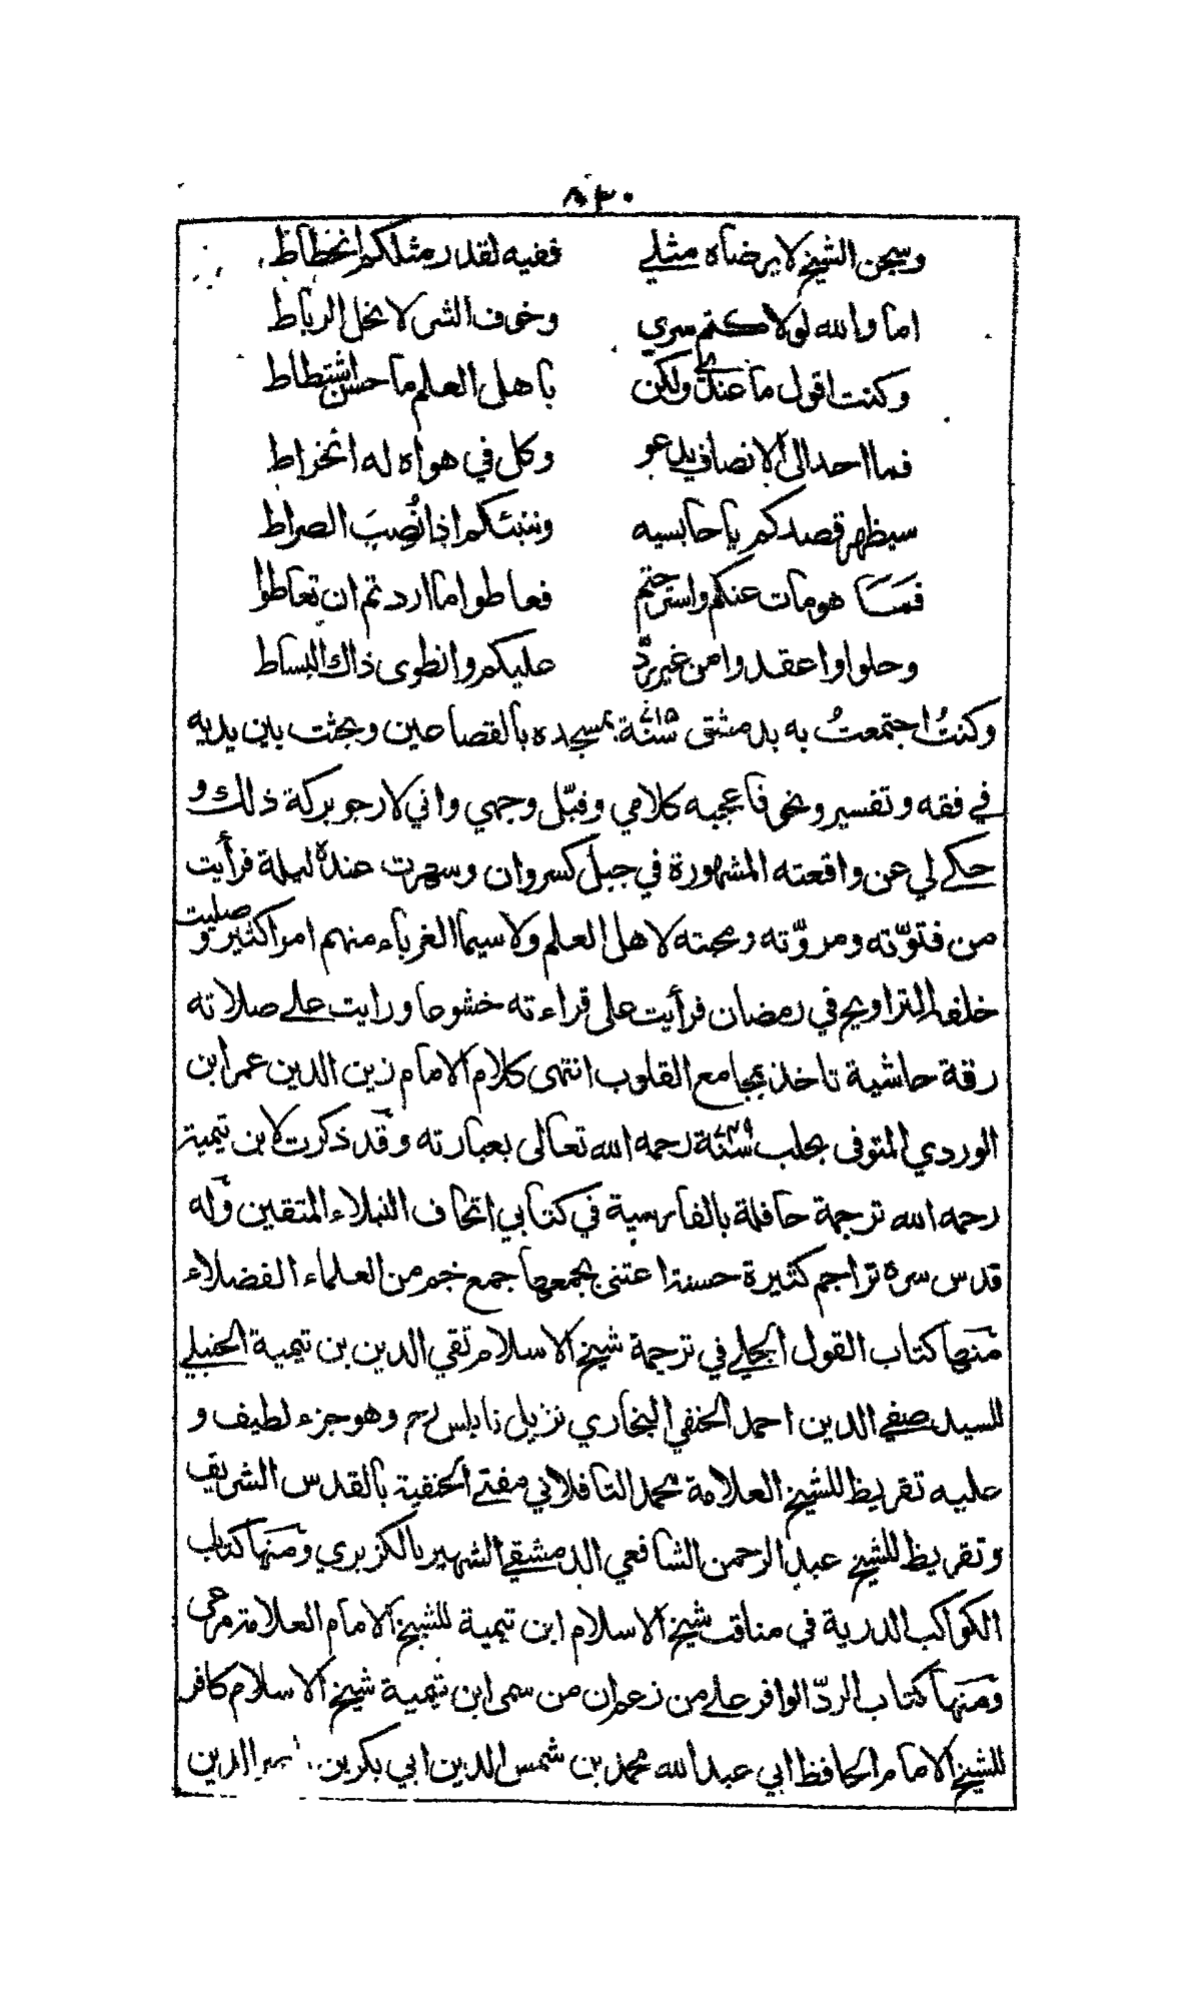 ٨٢٠
وسجن الشيخ لا يرضاه مثلي ففيه لقدر مثلكم انحطاط
اما والله لولا كتم سري وخوف الشر لانحل الرباط
وكنت اقول ما عندي ولكن باهل العلم ما حسن اشتطاط
فما احد الى الانصاف يدعو وكل في هواه له انخراط
سيظهر قصدكم يا حابسيه وننبئكم اذا نُصِبَ الصراط
فها هو مات عنكم واسترحتم فعاطوا ما اردتم ان تعاطوا
وحلوا واعقدوا من غير ردّ عليكم وانطوى ذاك البساط
وكنتُ اجتمعتُ به بدمشق سنة ٧١٥ بمسجده بالقصاعين وبحثت بين يديه
في فقه وتفسير ونحو فاعجبه كلامي وقبّل وجهي واني لارجو بركة ذلك و
حكى لي عن واقعته المشهورة في جبل كسروان وسهرت عنده ليلة فرأيت
من فتوّته ومروّته ومحبته لاهل العلم ولاسيما الغرباء منهم امرا كثيرا وصليت
خلفه التراويح في رمضان فرأيت على قراءته خشوعا ورايت على صلاته
رقة حاشية تاخذ بمجامع القلوب انتهى كلام الامام زين الدين عمر ابن
الوردي المتوفى بحلب سنة ٧٤٩ رحمه الله تعالى بعبارته وقد ذكرت لابن تيمية
رحمه الله ترجمة حافلة بالفارسية في كتابي اتحاف النبلاء المتقين وله
قدس سره تراجم كثيرة حسنة اعتنى بجمعها جمع جم من العلماء الفضلاء
منها كتاب القول الجلي في ترجمة شيخ الاسلام تقي الدين بن تيمية الحنبلي
للسيد صفي الدين احمد الحنفي البخاري نزيل نابلس رح وهو جزء لطيف و
عليه تقريظ للشيخ العلامة محمد التافلاني مفتي الحنفية بالقدس الشريف
وتقريظ للشيخ عبد الرحمن الشافعي الدمشقي الشهير بالكزبري ومنها كتاب
الكواكب الدرية في مناقب شيخ الاسلام ابن تيمية للشيخ الامام العلامة مرعي
ومنها كتاب الردّ الوافر على من زعم ان من سمى ابن تيمية شيخ الاسلام كافر
للشيخ الامام الحافظ ابي عبد الله محمد بن شمس الدين ابي بكر بن الدين